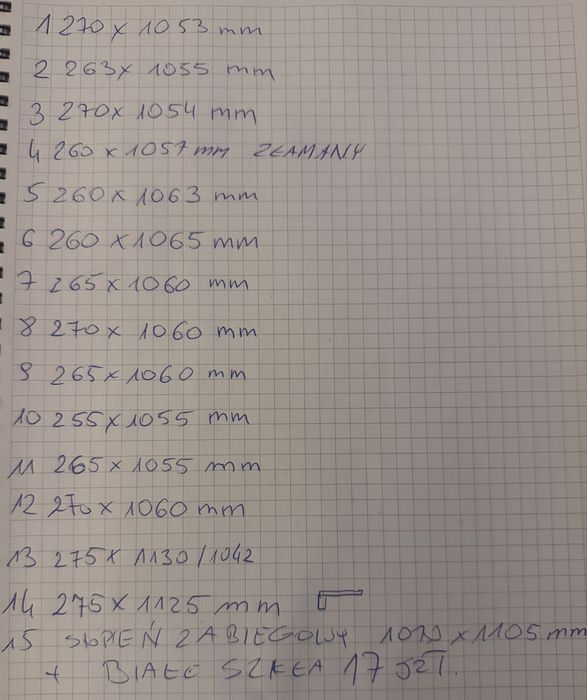 1 270 x 1053 mm
2 263 x 1055 mm
3 270 x 1054 mm
4 260 x 1057 mm ZŁAMANY
5 260 x 1063 mm
6 260 x 1065 mm
7 265 x 1060 mm
8 270 x 1060 mm
9 265 x 1060 mm
10 255 x 1055 mm
11 265 x 1055 mm
12 270 x 1060 mm
13 275 x 1130/1042
14 275 x 1125 mm
15 STOPIEŃ ZABIEGOWY x 1105 mm
+ BIAŁE SZKŁA 17 SZT.